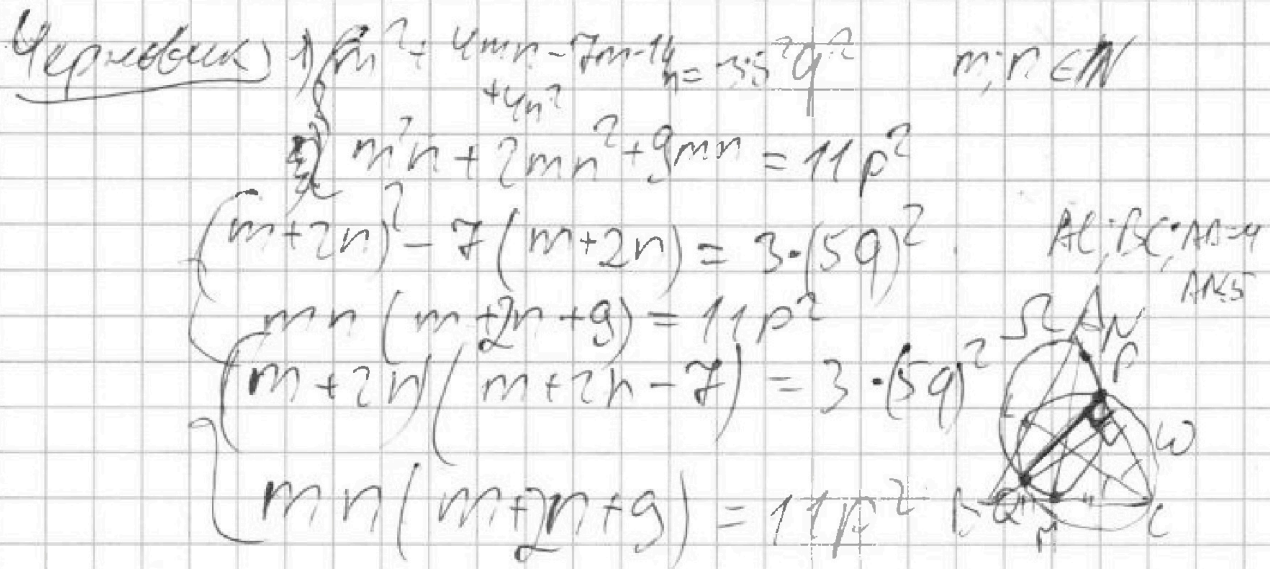 Черновик 1) m² + 4mn - 7m - 14n + 4n² = 3·5²q² m; n ∈ ℕ
m²n + 2mn² + 9mn = 11p²
(m+2n)² - 7(m+2n) = 3·(5q)²
mn(m+2n+9) = 11p²
(m+2n)(m+2n-7) = 3·(5q)²
mn(m+2n+9) = 11p²
AC; BC;
Ω A N
P
ω
Q M C